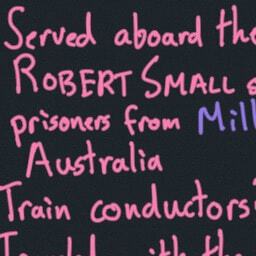 Served aboard the
ROBERT SMALL
prisoners from Mill
Australia
Train conductors'
with the